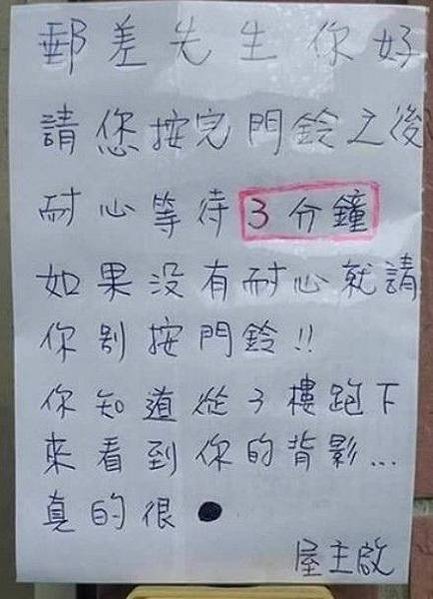 郵差先生你好
請您按完門鈴之後
耐心等待3分鐘
如果没有耐心就請
你别按門鈴!!
你知道從3樓跑下
來看到你的背影...
真的很●
屋主啟